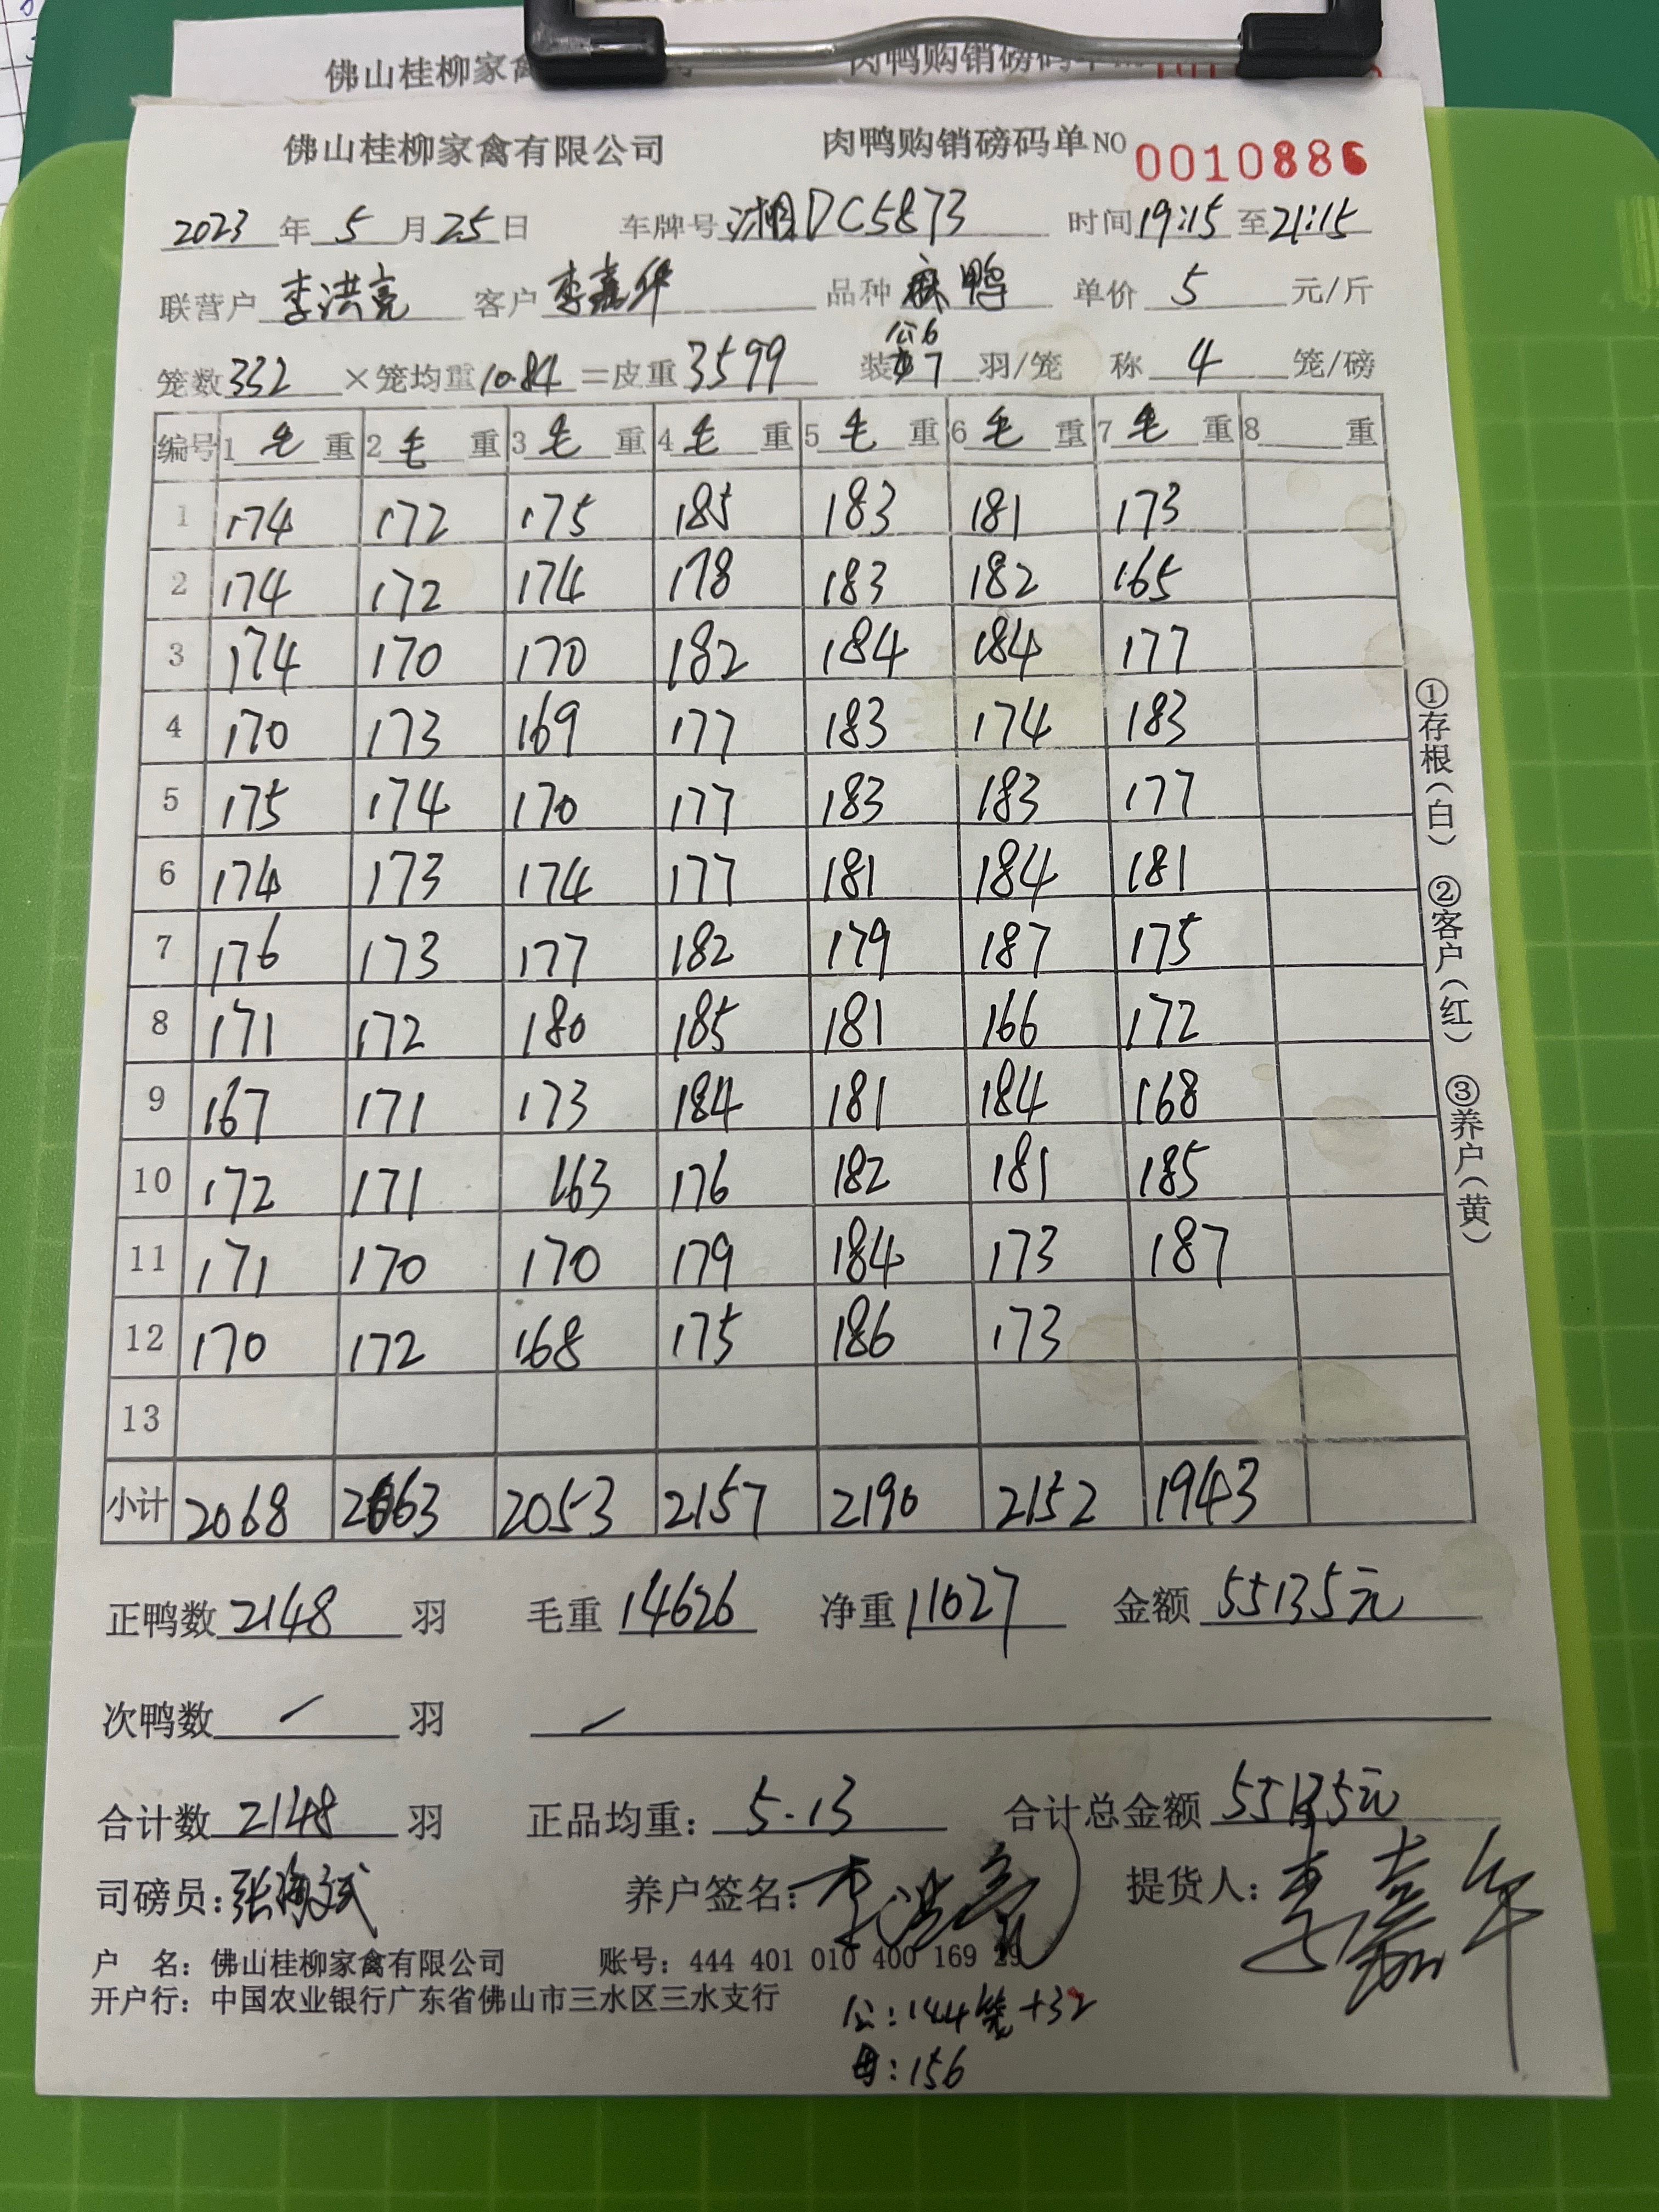 佛山桂柳家禽 肉鸭购销磅码单
佛山桂柳家禽有限公司 肉鸭购销磅码单NO 0010886
2023年5月25日 车牌号湘DC5873 时间19:15至21:15
联营户李洪亮 客户李嘉华 品种麻鸭 单价5元/斤
公6
笼数332×笼均重10.84=皮重3599 装母7羽/笼 称4笼/磅
编号 1毛重 2毛重 3毛重 4毛重 5毛重 6毛重 7毛重 8重
1 174 172 175 185 183 181 173
2 174 172 174 178 183 182 165
3 174 170 170 182 184 184 177
4 170 173 169 177 183 174 183
5 175 174 170 177 183 183 177
6 174 173 174 177 181 184 181
7 176 173 177 182 179 187 175
8 171 172 180 185 181 166 172
9 167 171 173 184 181 184 168
10 172 171 163 176 182 181 185
11 171 170 170 179 184 173 187
12 170 172 168 175 186 173
13
小计 2068 2063 2053 2157 2190 2152 1943
①存根(白) ②客户(红) ③养户(黄)
正鸭数2148羽 毛重14626 净重11027 金额55135元
次鸭数/羽 /
合计数2148羽 正品均重:5.13 合计总金额55135元
司磅员:张 养户签名:李洪亮 提货人:李嘉华
户 名:佛山桂柳家禽有限公司 账号:444 401 010 400 169 29
开户行:中国农业银行广东省佛山市三水区三水支行
公:144笼+32
母:156